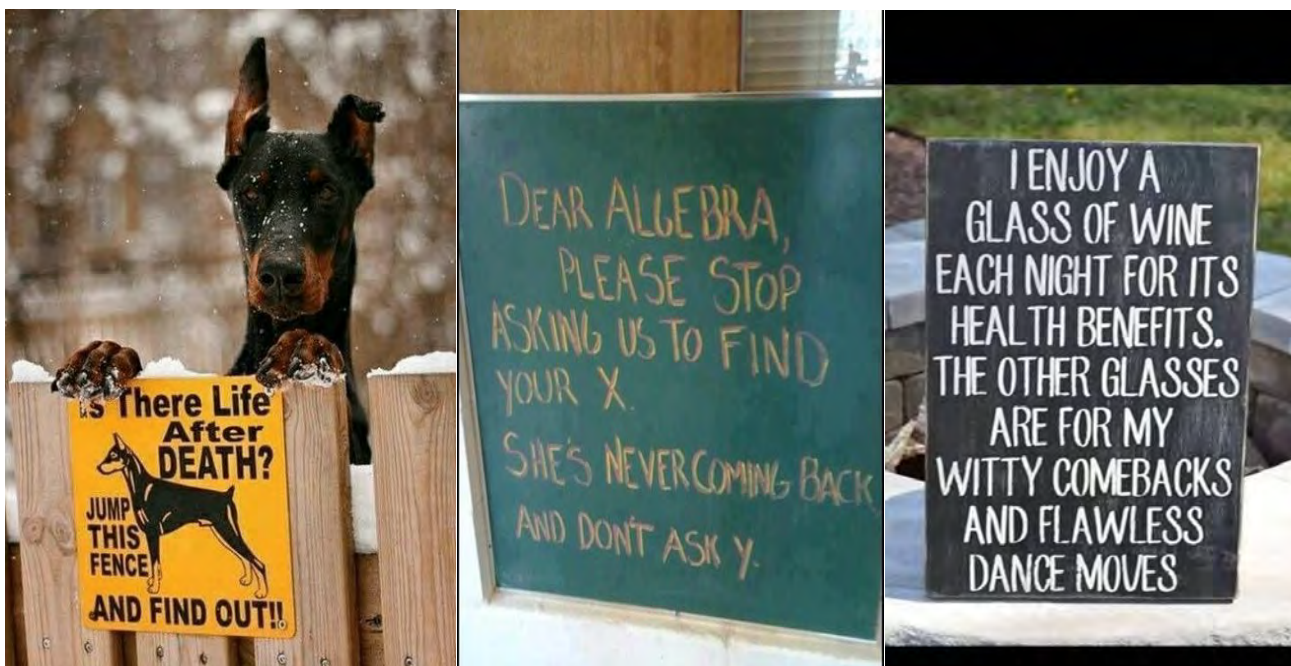 Is There Life
After
DEATH?
JUMP
THIS
FENCE
AND FIND OUT!!
DEAR ALGEBRA,
PLEASE STOP
ASKING US TO FIND
YOUR X.
SHE'S NEVER COMING BACK
AND DON'T ASK Y.
I ENJOY A
GLASS OF WINE
EACH NIGHT FOR ITS
HEALTH BENEFITS.
THE OTHER GLASSES
ARE FOR MY
WITTY COMEBACKS
AND FLAWLESS
DANCE MOVES